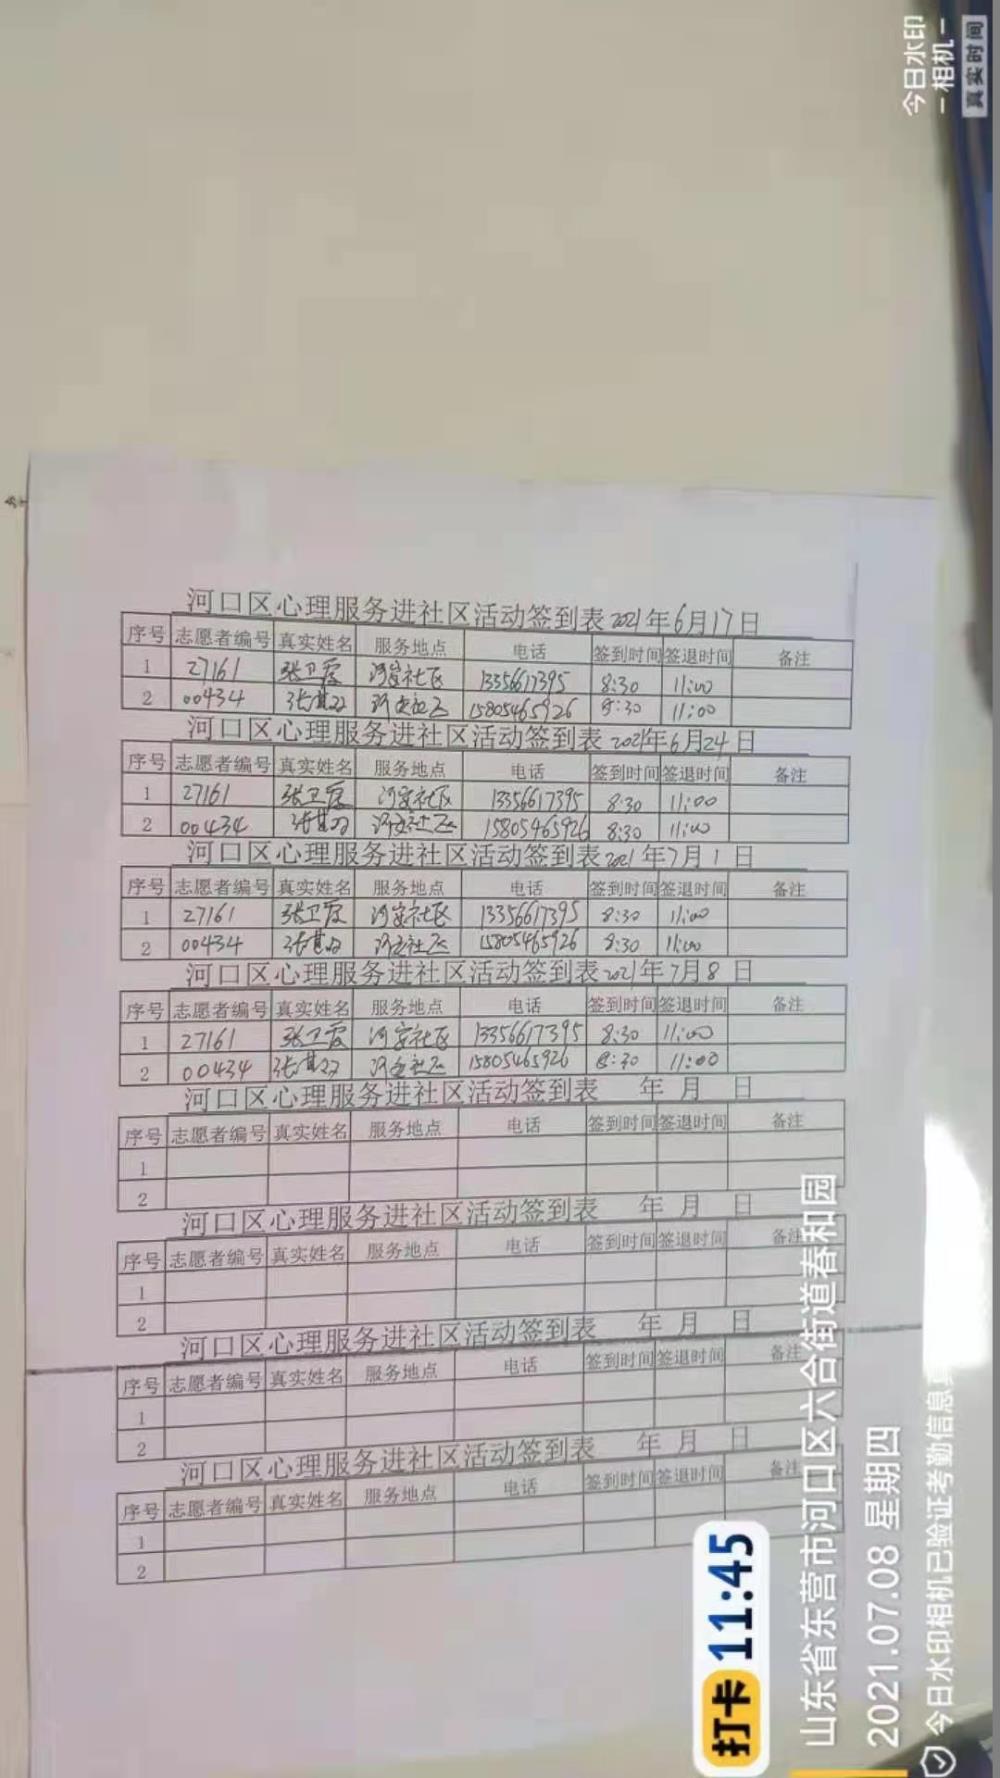 河口区心理服务进社区活动签到表2021年6月17日
序号 志愿者编号 真实姓名 服务地点 电话 签到时间 签退时间 备注
1 27161 张卫霞 河安社区 13356617395 8:30 11:00
2 00434 河安社区 15805465926 8:30 11:00
河口区心理服务进社区活动签到表2021年6月24日
序号 志愿者编号 真实姓名 服务地点 电话 签到时间 签退时间 备注
1 27161 张卫霞 河安社区 13356617395 8:30 11:00
2 00434 河安社区 15805465926 8:30 11:00
河口区心理服务进社区活动签到表2021年7月1日
序号 志愿者编号 真实姓名 服务地点 电话 签到时间 签退时间 备注
1 27161 张卫霞 河安社区 13356617395 8:30 11:00
2 00434 河安社区 15805465926 8:30 11:00
河口区心理服务进社区活动签到表2021年7月8日
序号 志愿者编号 真实姓名 服务地点 电话 签到时间 签退时间 备注
1 27161 张卫霞 河安社区 13356617395 8:30 11:00
2 00434 河安社区 15805465926 8:30 11:00
河口区心理服务进社区活动签到表 年 月 日
序号 志愿者编号 真实姓名 服务地点 电话 签到时间 签退时间 备注
1
2
河口区心理服务进社区活动签到表 年 月 日
序号 志愿者编号 真实姓名 服务地点 电话 签到时间 签退时间 备注
1
2
河口区心理服务进社区活动签到表 年 月 日
序号 志愿者编号 真实姓名 服务地点 电话 签到时间 签退时间 备注
1
2
河口区心理服务进社区活动签到表 年 月 日
序号 志愿者编号 真实姓名 服务地点 电话 签到时间 签退时间 备注
1
2
今日水印
-相机-
真实时间
打卡 11:45
山东省东营市河口区六合街道春和园
2021.07.08 星期四
今日水印相机已验证考勤信息